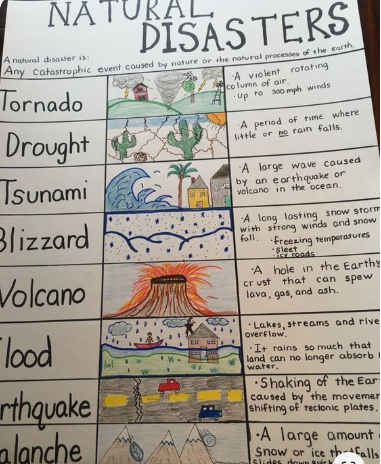 NATURAL
DISASTERS
A natural disaster is:
Any catastrophic event caused by nature or the natural processes of the Earth.
Tornado
·A violent rotating
column of air.
·Up to 300 mph winds
Drought
·A period of time where
little or no rain falls.
Tsunami
·A large wave caused
by an earthquake or
volcano in the ocean.
Blizzard
·A long lasting snow storm
with strong winds and snow
fall.
·freezing temperatures
·sleet
·icy roads
Volcano
·A hole in the Earth's
crust that can spew
lava, gas, and ash.
lood
·Lakes, streams and rive
overflow.
·It rains so much that
land can no longer absorb
water.
rthquake
·Shaking of the Ear
caused by the movemen
shifting of tectonic plates.
alanche
·A large amount
Snow or ice that falls
slides down